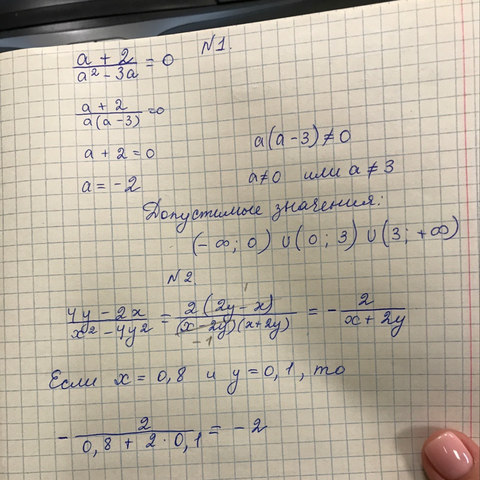 N1.
a + 2 / a² - 3a = 0
a + 2 / a(a - 3) = 0
a + 2 = 0
a(a - 3) ≠ 0
a = -2
a ≠ 0 или a ≠ 3
Допустимые значения:
(-∞; 0) ∪ (0; 3) ∪ (3; +∞)
N2.
4y - 2x / x² - 4y² = 2(2y - x) / (x - 2y)(x + 2y) = - 2 / x + 2y
-1
Если x = 0,8 и y = 0,1, то
- 2 / 0,8 + 2 · 0,1 = -2